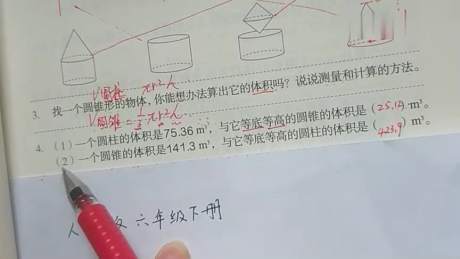 V圆柱 πr²h
3. 找一个圆锥形的物体,你能想办法算出它的体积吗?说说测量和计算的方法。
V圆锥=πr²h
4.(1)一个圆柱的体积是75.36 m³,与它等底等高的圆锥的体积是(25.12)m³。
(2)一个圆锥的体积是141.3 m³,与它等底等高的圆柱的体积是(423.9)m³。
人 六年级下册